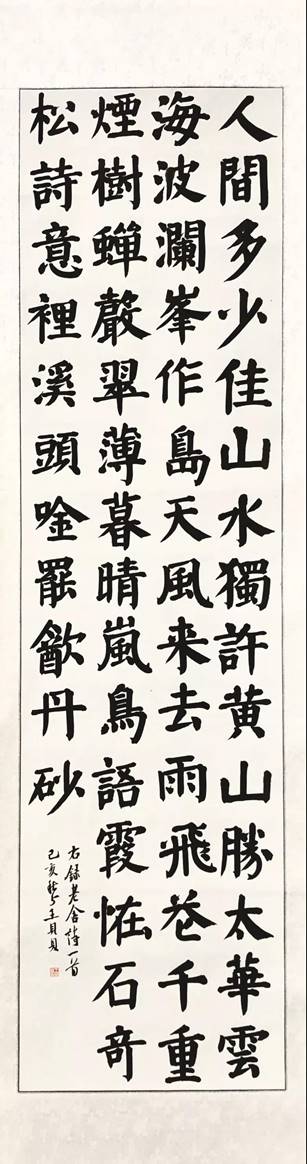 人間多少佳山水獨許黄山勝太華雲
海波瀾峯作島天風来去雨飛卷千重
煙樹蟬聲翠薄暮晴嵐鳥語霞恠石奇
松詩意裡溪頭唫罷㱃丹砂
右錄老舍詩一首
己亥秋